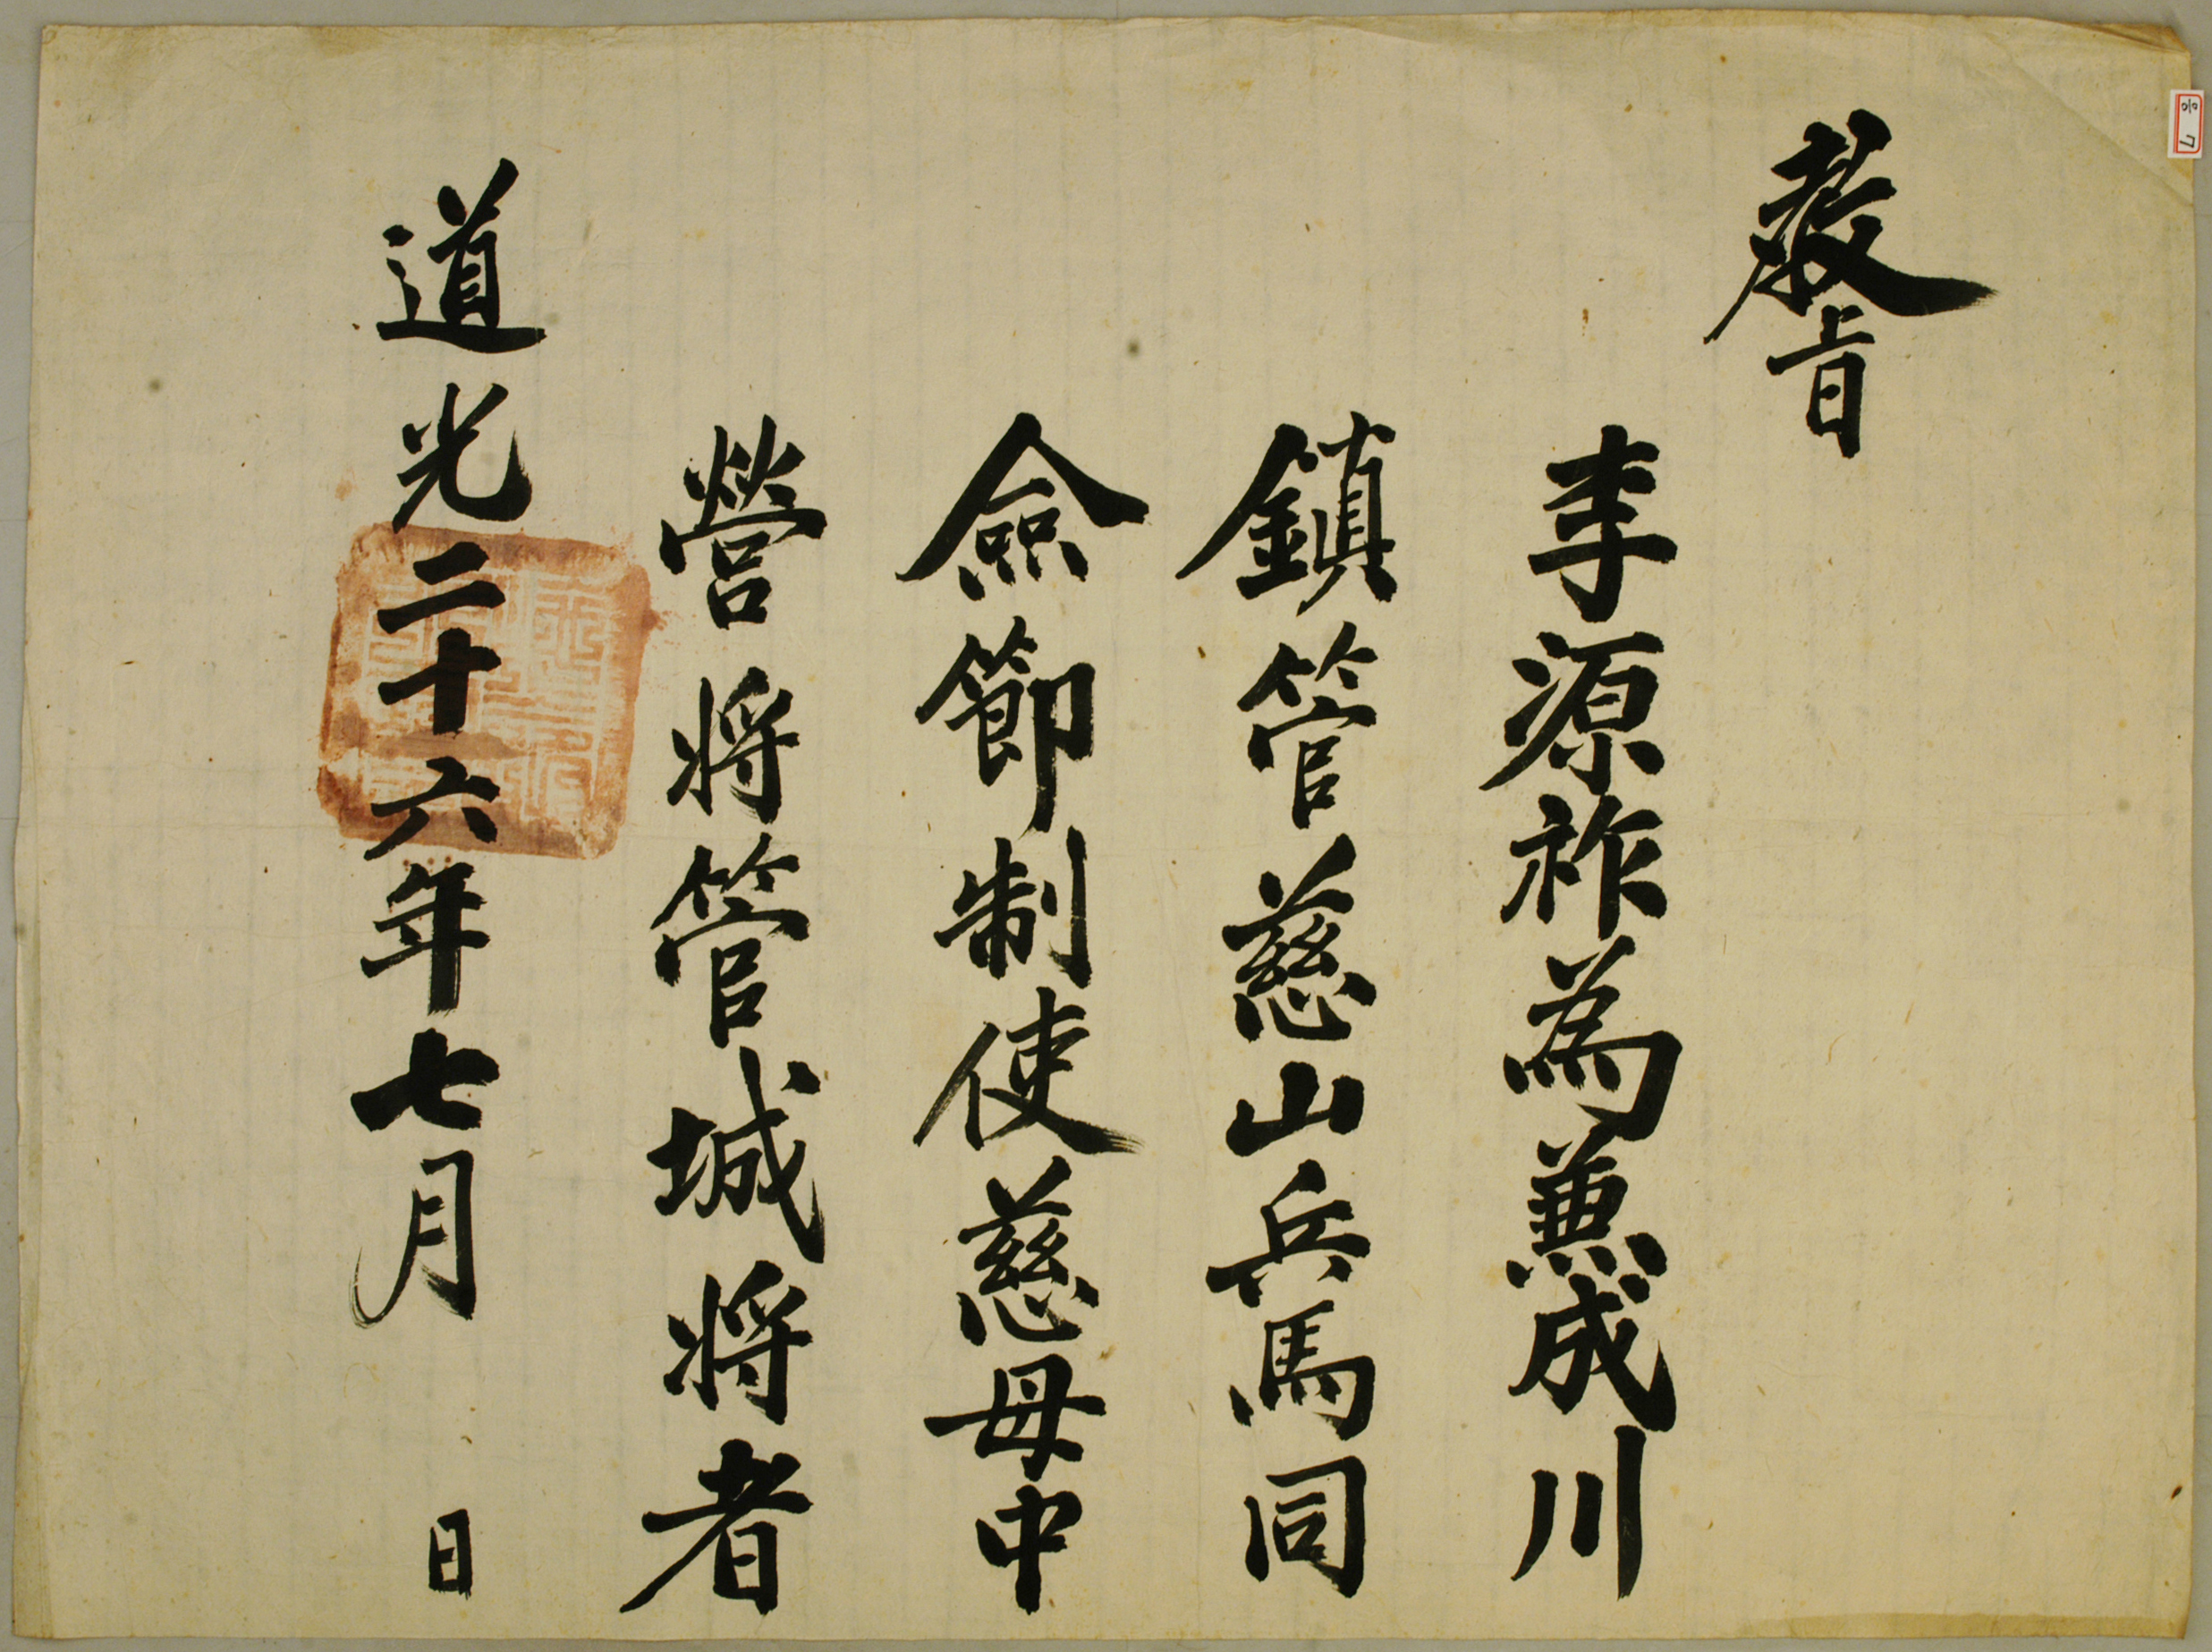 敎旨
李源祚為兼成川
鎮管慈山兵馬同
僉節制使慈母中
營將管城將者
道光二十六年七月 日
음 7